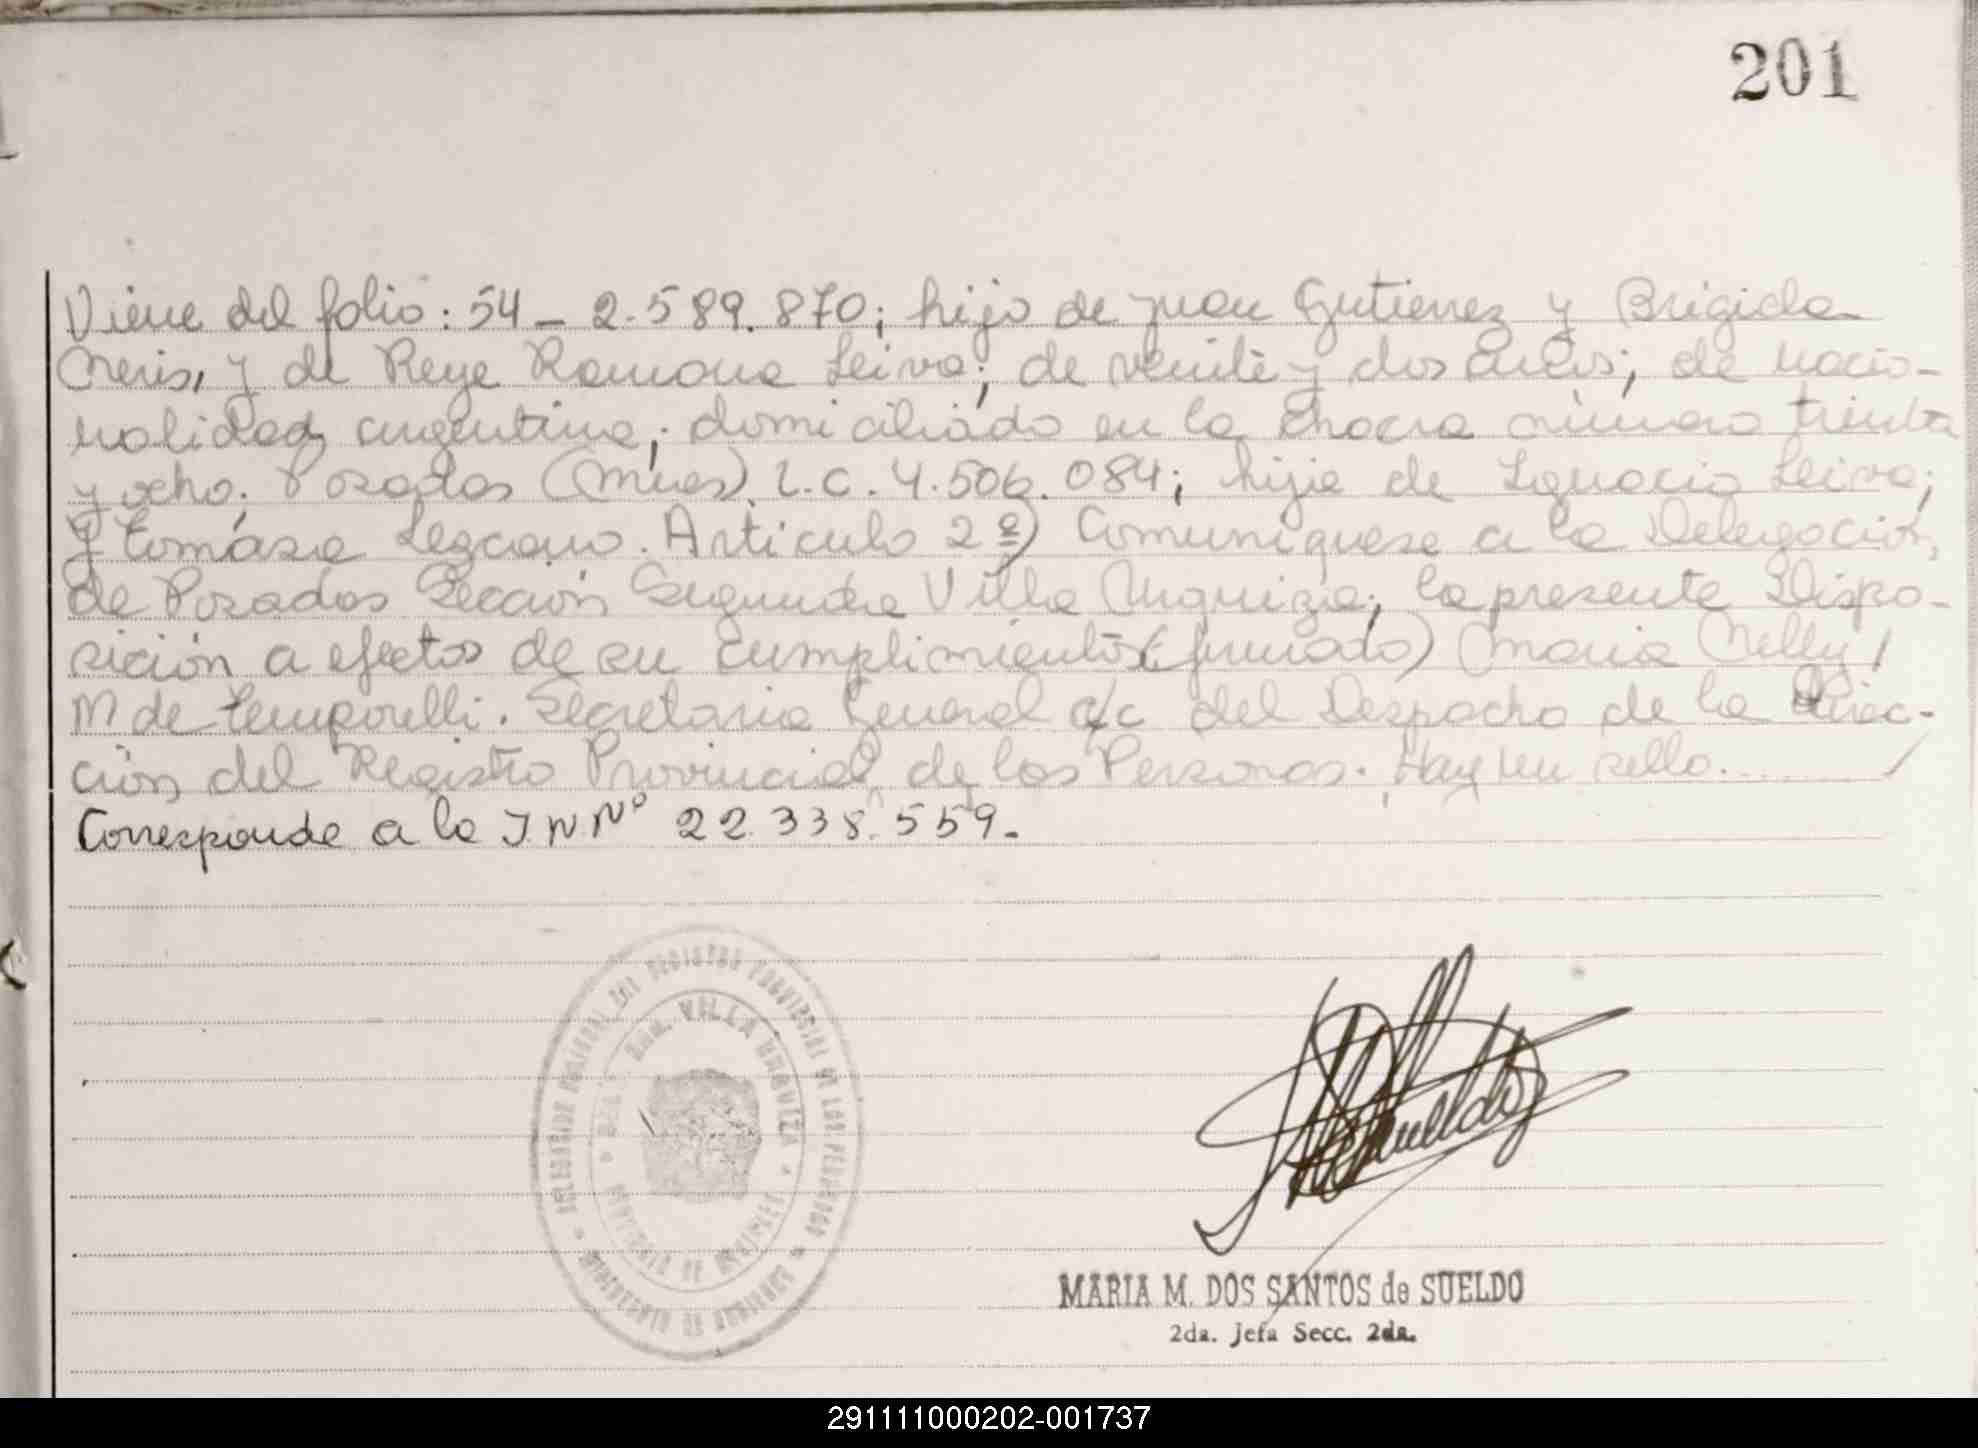 201
Viene del folio: 54 - 2.589.870; hijo de Juan Gutierrez y Brigida
Neris, y de Reye Ramona Leiva; de veinte y dos años; de nacio-
nalidad argentina; domiciliado en la Chacra número treinta
y ocho. Posadas (Mnes). L.C. 4.506.084; hija de Ignacio Leiva;
y Tomasa Lezcano. Articulo 2º) Comuniquese a la Delegación,
de Posadas Sección Segunda Villa Urquiza; la presente Dispo-
sición a efectos de su cumplimiento (firmado) Maria Nelly /
M de Temporelli. Secretaria General a/c del Despacho de la Direc-
ción del Registro Provincial de las Personas. Hay un sello. /
Corresponde a la I.N.Nº 22.338.559.
DELEGACION REGIONAL DEL REGISTRO PROVINCIAL DE LAS PERSONAS
MINISTERIO DE GOBIERNO
SECC. 2DA. VILLA URQUIZA
PROVINCIA DE MISIONES
MARIA M. DOS SANTOS de SUELDO
2da. Jefa Secc. 2da.
291111000202-001737